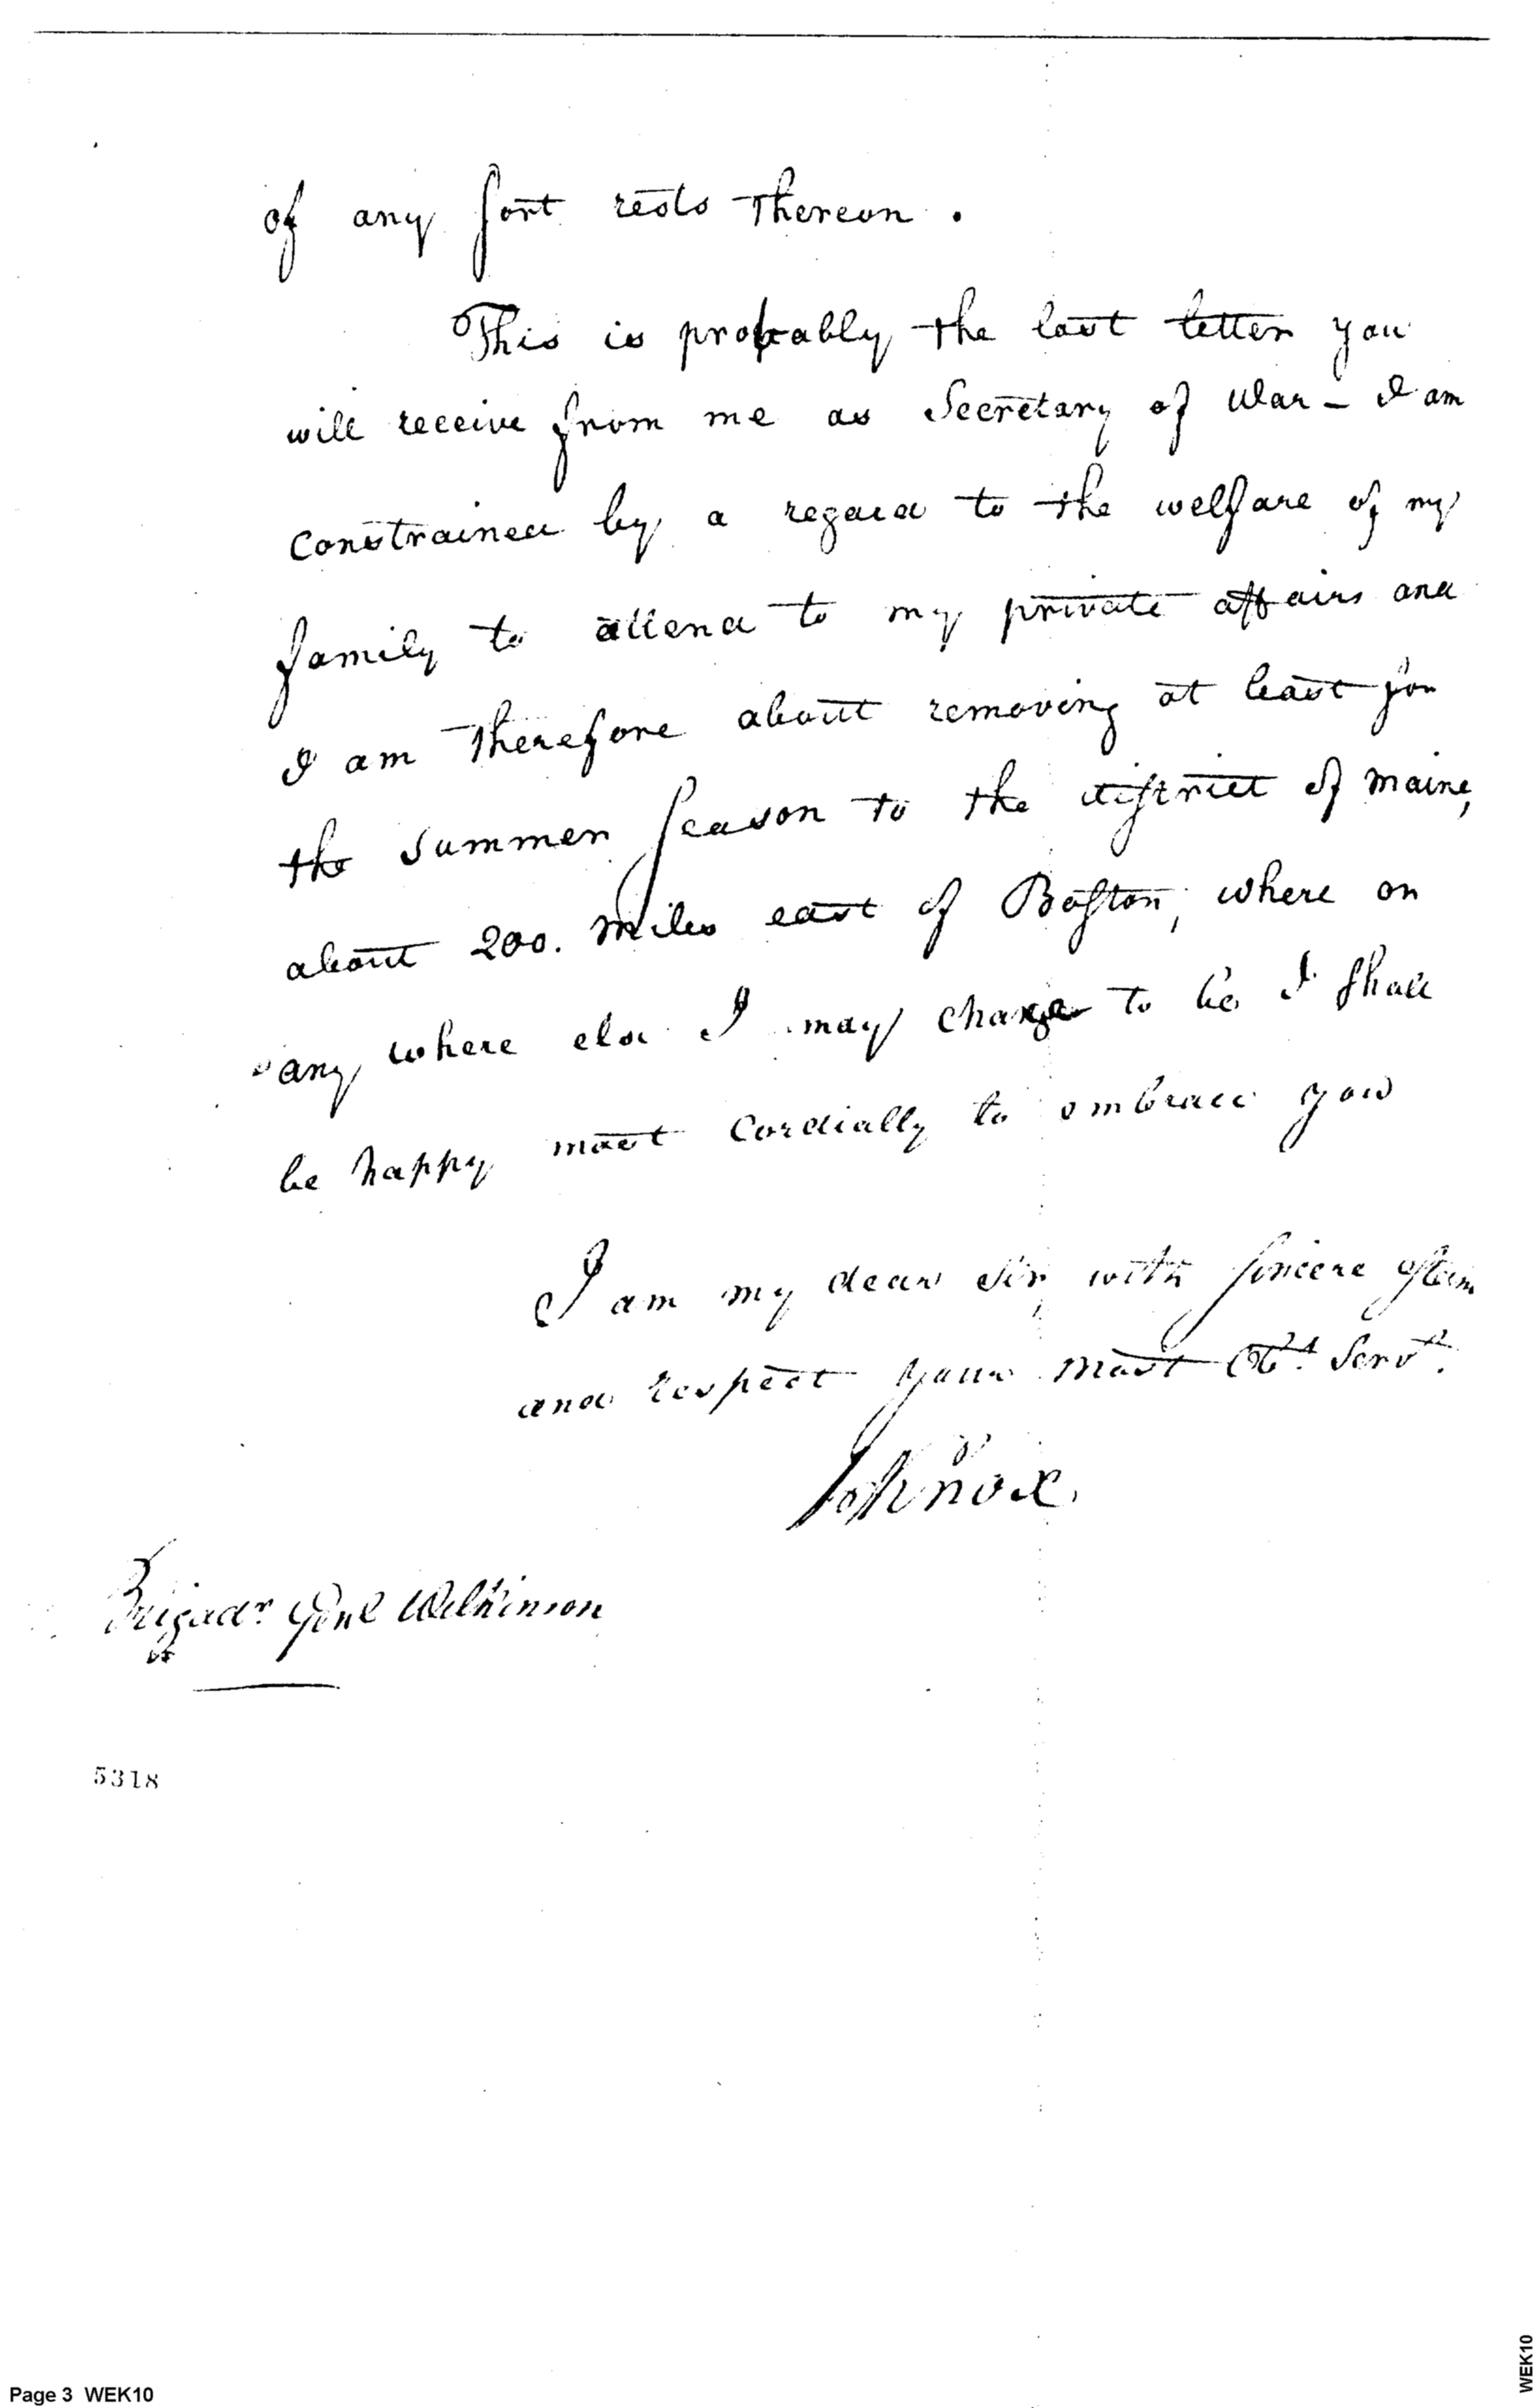 of any sort rests thereon.
This is probably the last letter you
will receive from me as Secretary of War – I am
constrained by a regard to the welfare of my
family to attend to my private affairs and
I am therefore about removing at least for
the summer season to the district of maine,
about 200. miles east of Boston, where or
any where else I may chance to be I shall
be happy most cordially to embrace you
I am my dear Sir, with sincere esteem
and respect your most Obt. Servt.
HKnox.
Brigadr Genl Wilkinson
5318
Page 3 WEK10
WEK10